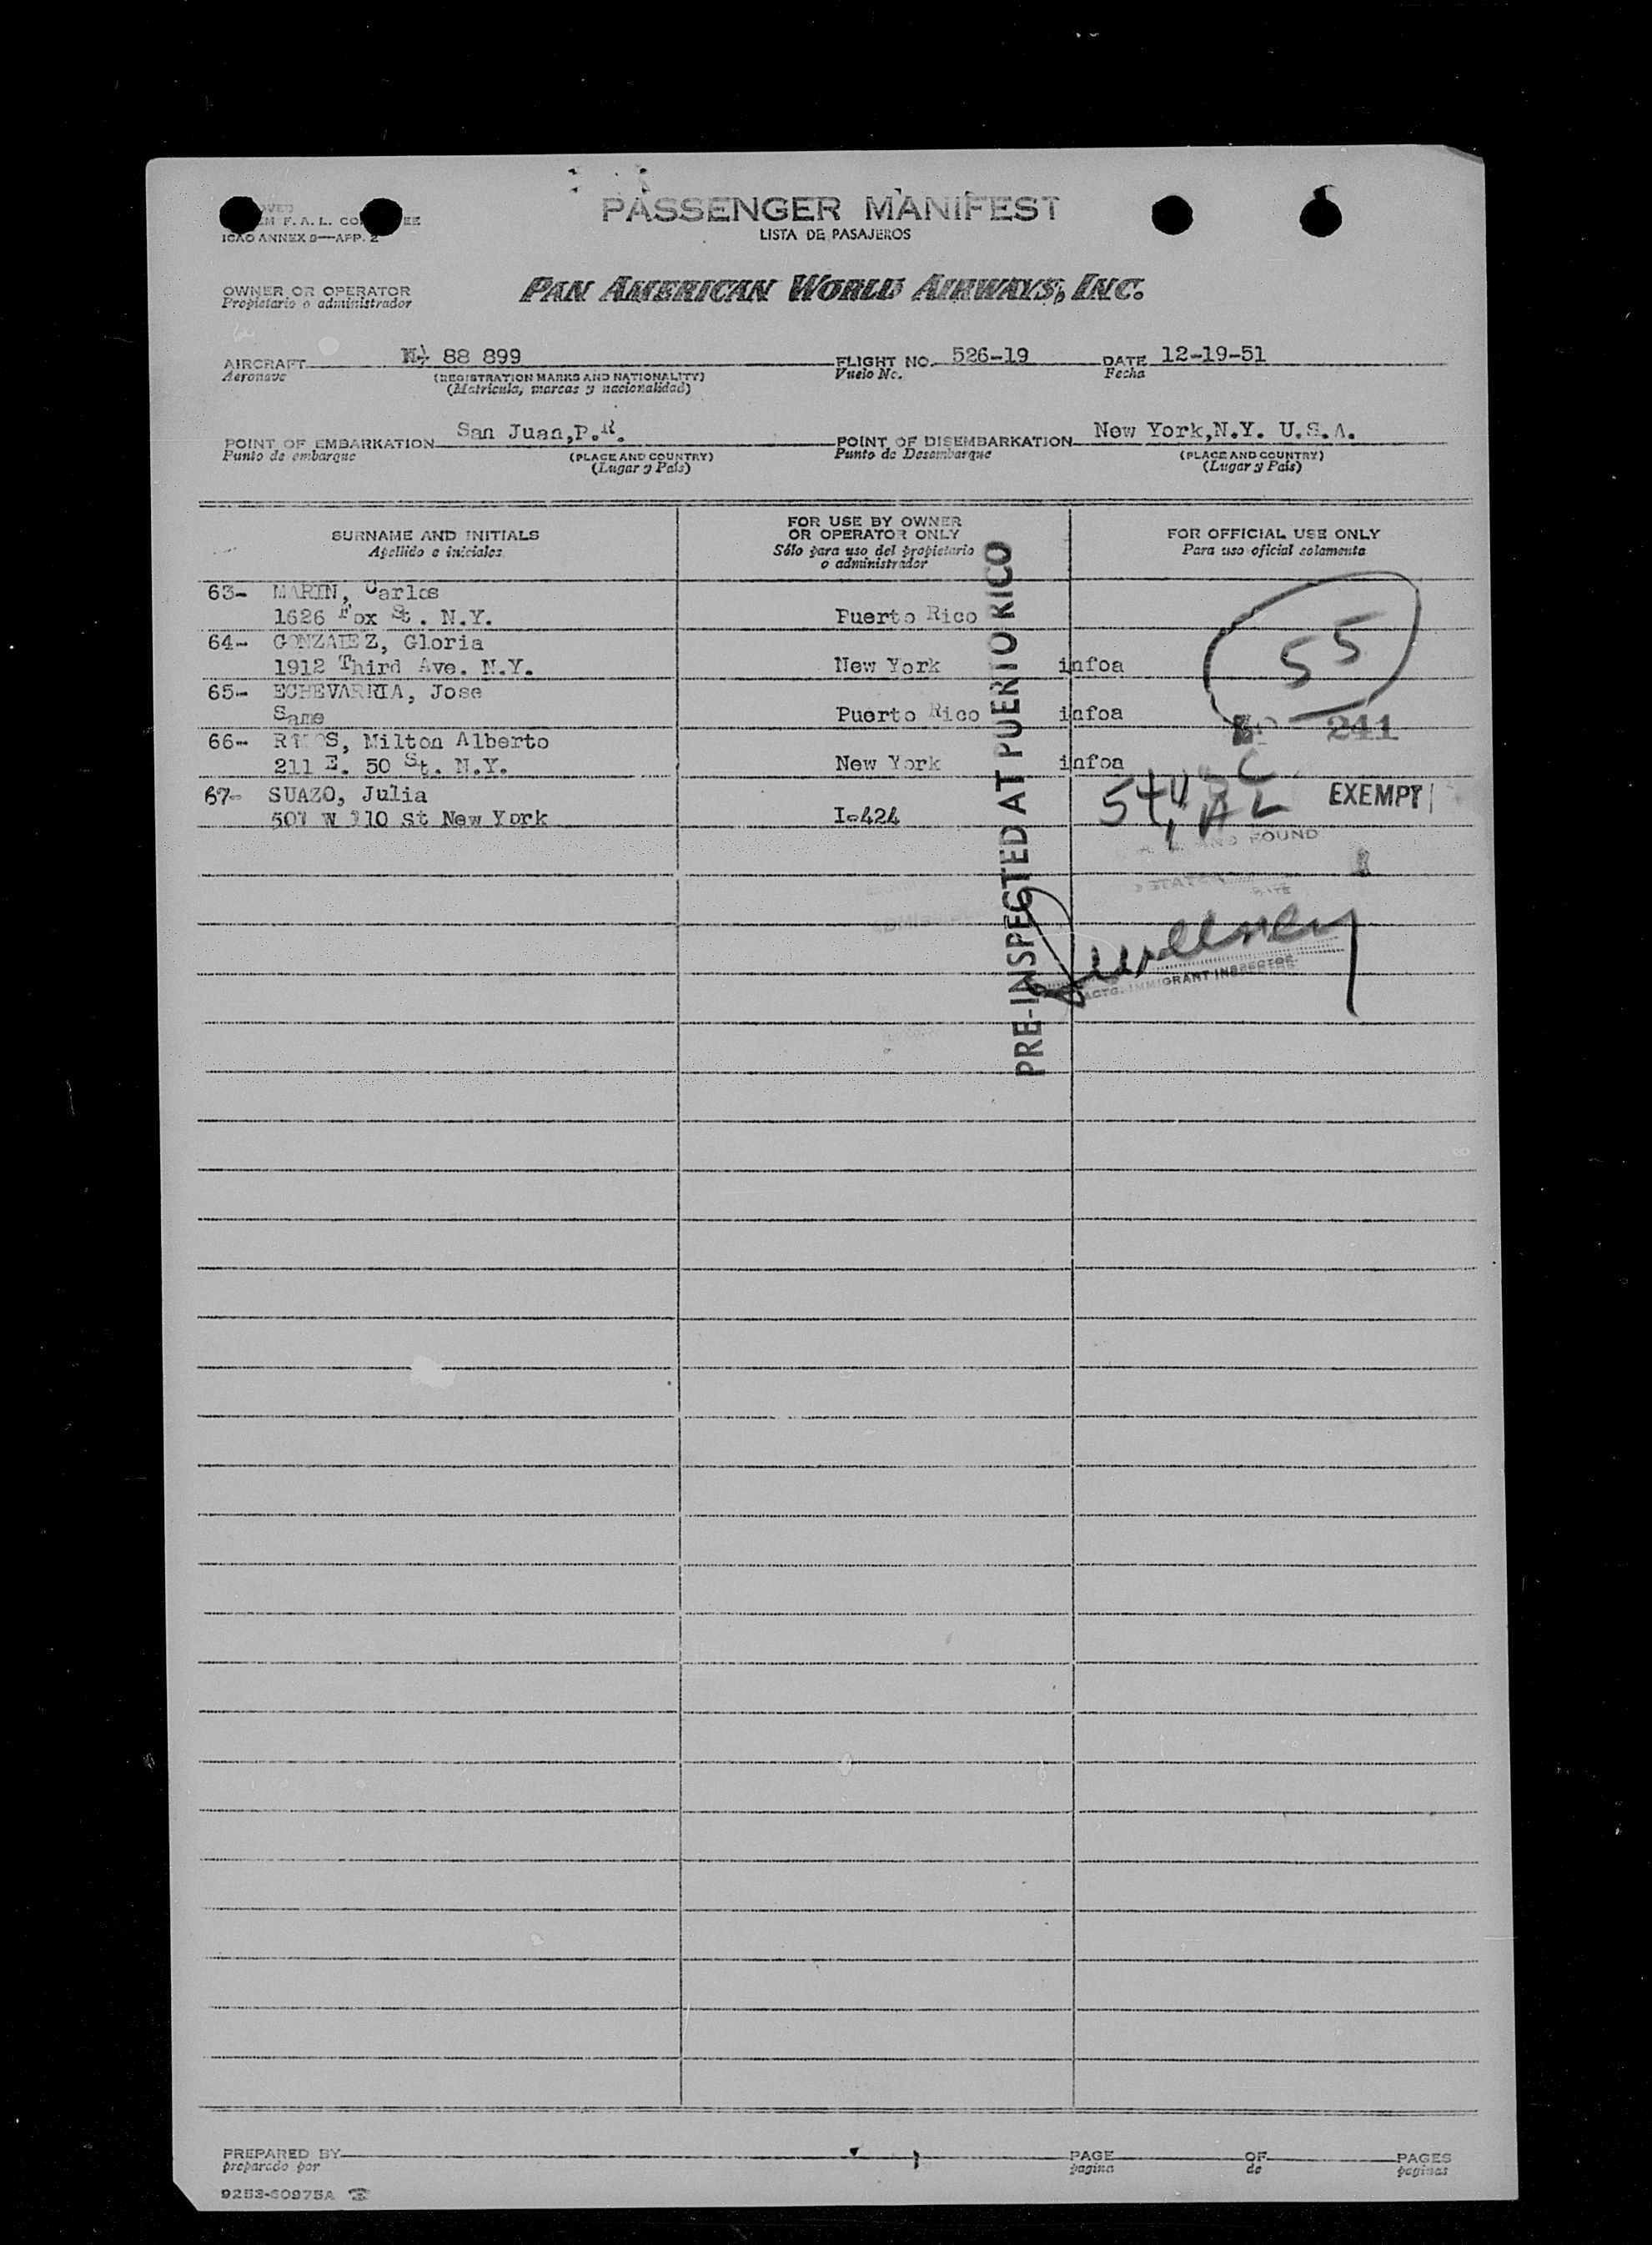 PASSENGER MANIFEST
LISTA DE PASAJEROS
F. A. L.
ICAO ANNEX 9—APP. 2
OWNER OR OPERATOR
Propietario o administrador
PAN AMERICAN WORLD AIRWAYS, INC.
AIRCRAFT 88 899 FLIGHT NO. 526-19 DATE 12-19-51
Aeronave (REGISTRATION MARKS AND NATIONALITY) Vuelo No. Fecha
(Matricula, marcas y nacionalidad)
POINT OF EMBARKATION San Juan,P.R. POINT OF DISEMBARKATION New York,N.Y. U.S.A.
Punto de embarque (PLACE AND COUNTRY) Punto de Desembarque (PLACE AND COUNTRY)
(Lugar y País) (Lugar y País)
SURNAME AND INITIALS FOR USE BY OWNER OR OPERATOR ONLY FOR OFFICIAL USE ONLY
Apellido e iniciales Sólo para uso del propietario o administrador Para uso oficial solamente
63- MARIN, Carlos
1626 Fox St. N.Y. Puerto Rico
64- GONZALEZ, Gloria
1912 Third Ave. N.Y. New York infoa
55
65- ECHEVARRIA, Jose
Same Puerto Rico infoa
241
66- RAMOS, Milton Alberto
211 E. 50 St. N.Y. New York infoa
67- SUAZO, Julia EXEMPT
507 W 110 St New York I-424
PRE-INSPECTED AT PUERTO RICO
AND FOUND
ACTG. IMMIGRANT INSPECTOR
PREPARED BY PAGE OF PAGES
preparado por pagina de paginas
9253-60975A